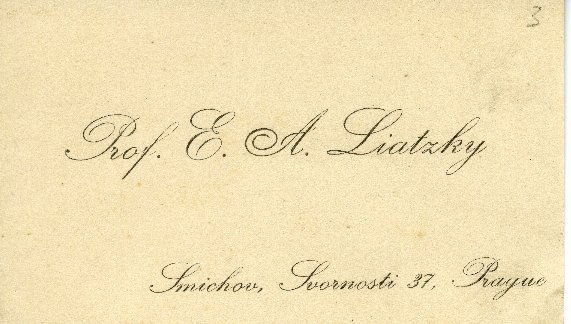 3
Prof. E. A. Liatzky
Smichov, Svornosti 37, Prague